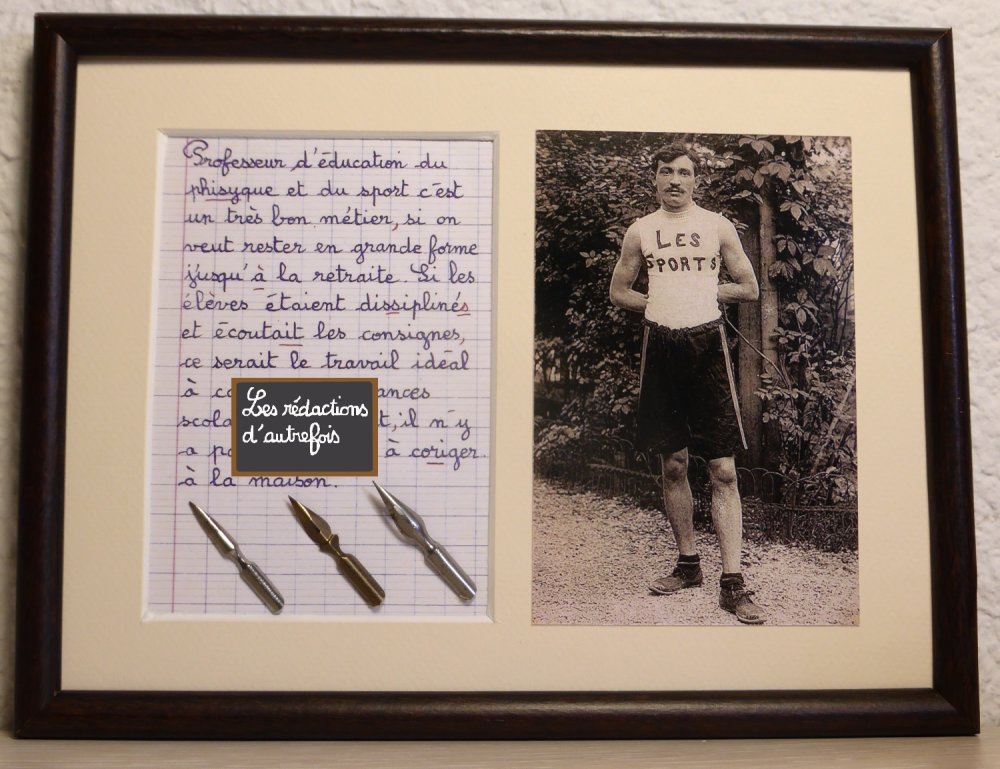 Professeur d'éducation du
phisyque et du sport c'est
un très bon métier, si on
veut rester en grande forme
j'usqu'à la retraite. Si les
élèves étaient dissiplinés
et écoutait les consignes,
ce serait le travail idéal
à
il n'y
a à coriger
à la maison.
Les rédactions
d'autrefois
LES
SPORTS